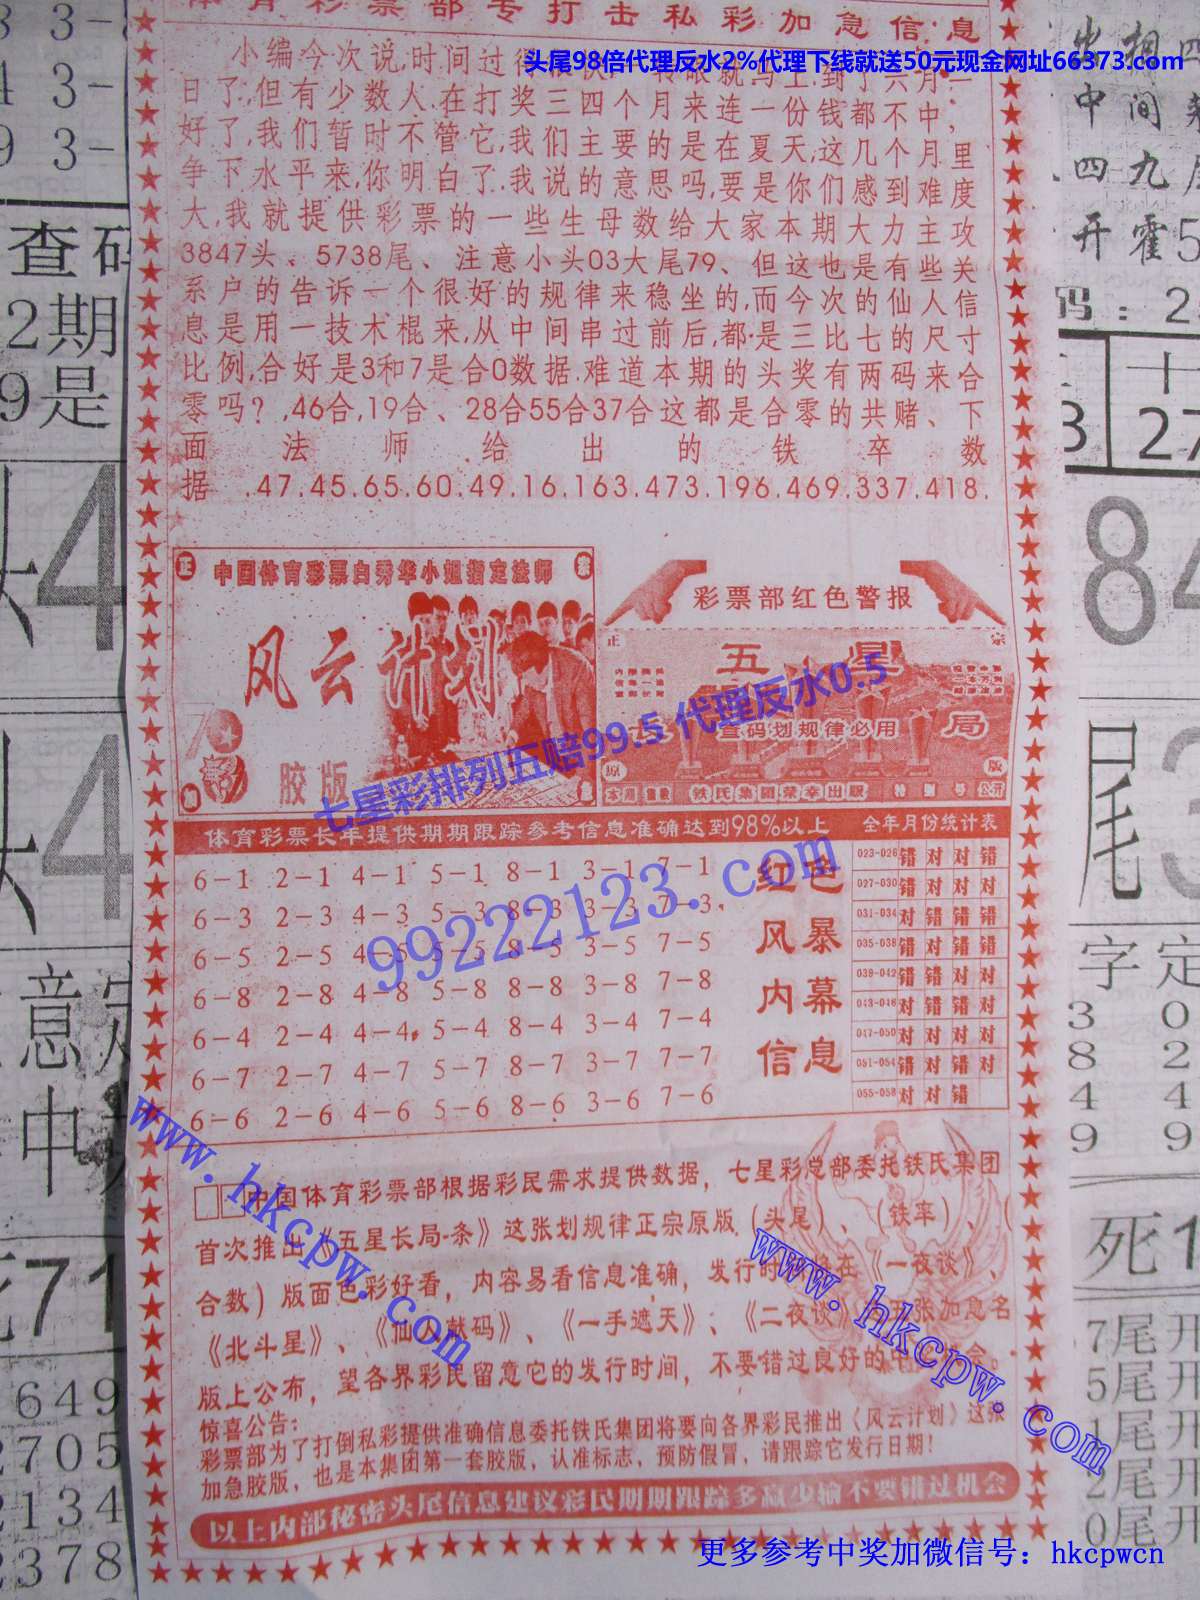 体育彩票部专打击私彩加急信息
头尾98倍代理反水2%代理下线就送50元现金网址66373.com
小编今次说,时间过得
日了,但有少数人.在打奖三四个月来连一份钱都不中,
好了,我们暂时不管它,我们主要的是在夏天,这几个月里
争下水平来,你明白了.我说的意思吗,要是你们感到难度
大,我就提供彩票的一些生母数给大家本期大力主攻
3847头、5738尾、注意小头03大尾79、但这也是有些关
系户的告诉一个很好的规律来稳坐的,而今次的仙人信
息是用一技木棍来,从中间串过前后,都是三比七的尺寸
比例,合好是3和7是合0数据.难道本期的头奖有两码来合
零吗?,46合,19合、28合55合37合这都是合零的共赌、下
面法师给出的铁卒数
据.47.45.65.60.49.16.163.473.196.469.337.418.
正 中国体育彩票白秀华小姐指定法师
风云计划
胶版
彩票部红色警报
正 五星 宗
长局
查码划规律必用
原 版
本期重投 铁氏集团荣幸出版 特别号公开
七星彩排列五赔99.5 代理反水0.5
体育彩票长年提供期期跟踪参考信息准确达到98%以上
全年月份统计表
6-1 2-1 4-1 5-1 8-1 3-1 7-1
6-3 2-3 4-3 5-3 8-3 3-3 7-3
6-5 2-5 4-5 5-5 8-5 3-5 7-5
6-8 2-8 4-8 5-8 8-8 3-8 7-8
6-4 2-4 4-4 5-4 8-4 3-4 7-4
6-7 2-7 4-7 5-7 8-7 3-7 7-7
6-6 2-6 4-6 5-6 8-6 3-6 7-6
红色
风暴
内幕
信息
023-026 错 对 对 错
027-030 错 对 对 对
031-034 对 错 错 错
035-038 错 对 错 错
039-042 错 错 对 对
043-046 对 错 对 错
047-050 对 对 对 对
051-054 错 对 错 对
055-058 对 对 错
99222123.com
中国体育彩票部根据彩民需求提供数据，七星彩总部委托铁氏集团
首次推出《五星长局-条》这张划规律正宗原版（头尾）、（铁率）、（
合数）版面色彩好看，内容易看信息准确，发行时 将在《一夜谈》、
《北斗星》、《仙人献码》、《一手遮天》；《二夜谈》 张加急名
版上公布，望各界彩民留意它的发行时间，不要错过良好的中
惊喜公告:
彩票部为了打倒私彩提供准确信息委托铁氏集团将要向各界彩民推出《风云计划》这张
加急胶版，也是本集团第一套胶版，认准标志，预防假冒，请跟踪它发行日期!
以上内部秘密头尾信息建议彩民期期跟踪多赢少输不要错过机会
www.hkcpw.com
www.hkcpw.com
更多参考中奖加微信号：hkcpwcn
3-
3-
3-
查码
2期
9是
头4
头4
意定
中
71
1649
2705
2134
2378
出相四
中间
四九尾
开霍5
码:2
十
27
84
尾3
字定
3 0
8 2
4 4
9 9
死1
7尾开
5尾开
1尾开
2尾开
0尾开